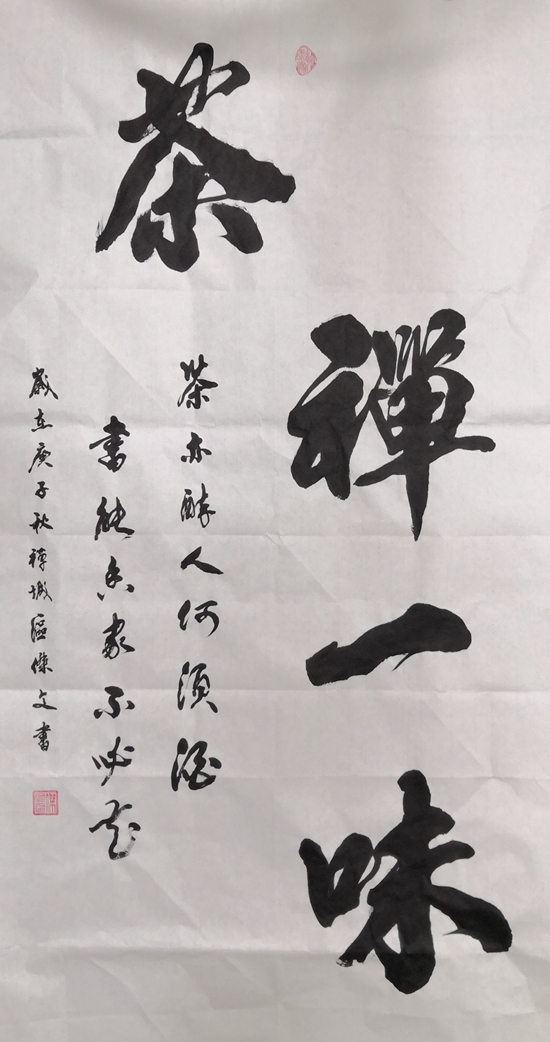 茶
禪一味
茶亦醉人何須酒
書能香家不必花
歲在庚子秋禪城區傑文書